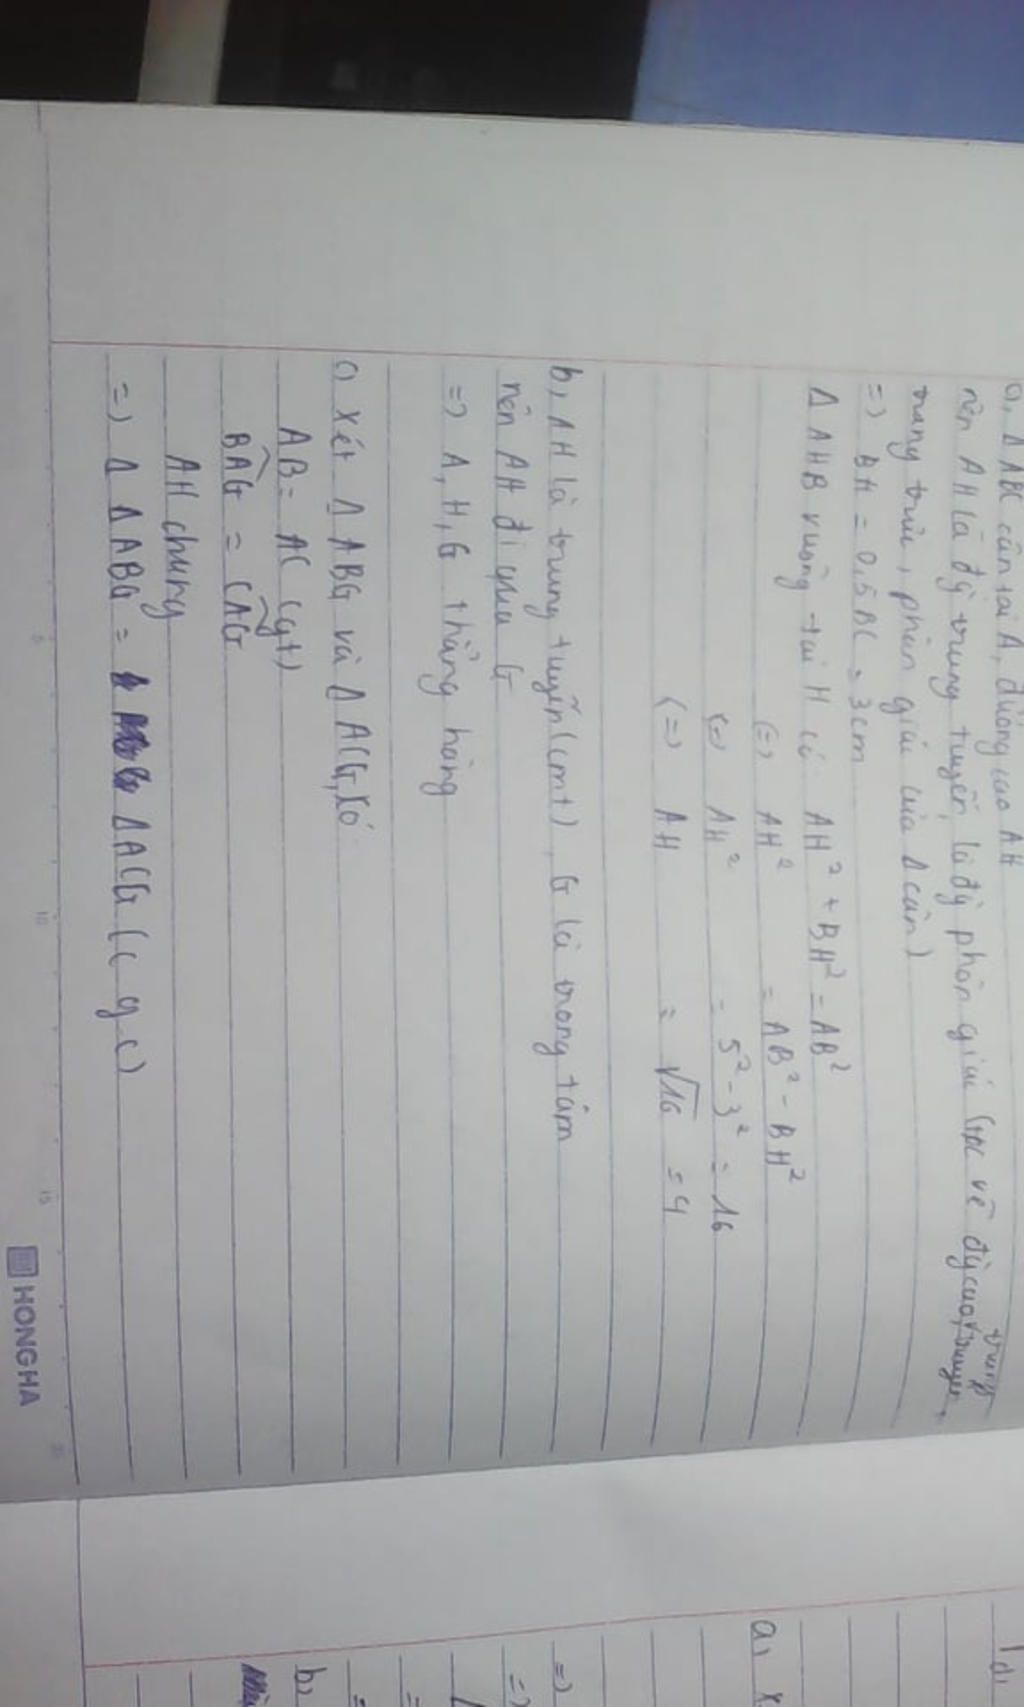 a, Δ ABC cân tại A, đường cao AH
nên AH là đg trung tuyến, là đg phân giác (t/c về đg cao, trung tuyến,
trung trực, phân giác của Δ cân)
=> BH = 0,5BC = 3cm
Δ AHB vuông tại H có AH² + BH² = AB²
(=) AH² = AB² - BH²
(=) AH² = 5² - 3² = 16
(=) AH = √16 = 4
b, AH là trung tuyến (cmt), G là trong tâm
nên AH đi qua G
=> A, H, G thẳng hàng
c) Xét Δ ABG và Δ ACG, có
AB = AC (gt)
BAG = CAG
AH chung
=> Δ ΔABG = ΔACG (c g c)
HONGHA
5
10
15
a, x
b,
=>
=>